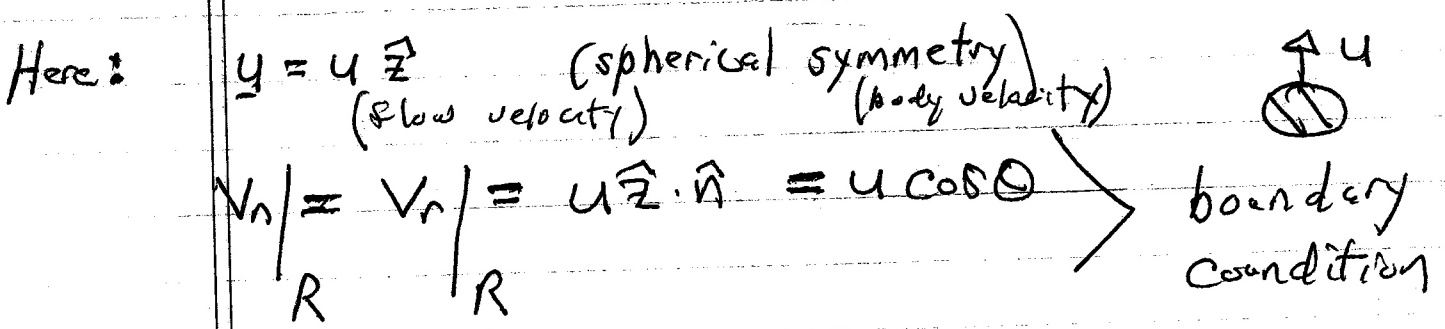 Here: u = u ẑ (spherical symmetry) u
(flow velocity) (body velocity)
Vn|R = Vr|R = u ẑ · n̂ = u cos θ > boundary
coundition